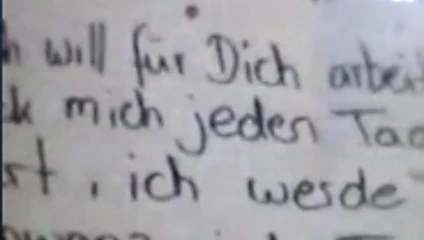 h will für Dich arbeit
k mich jeden Tag
st, ich werde